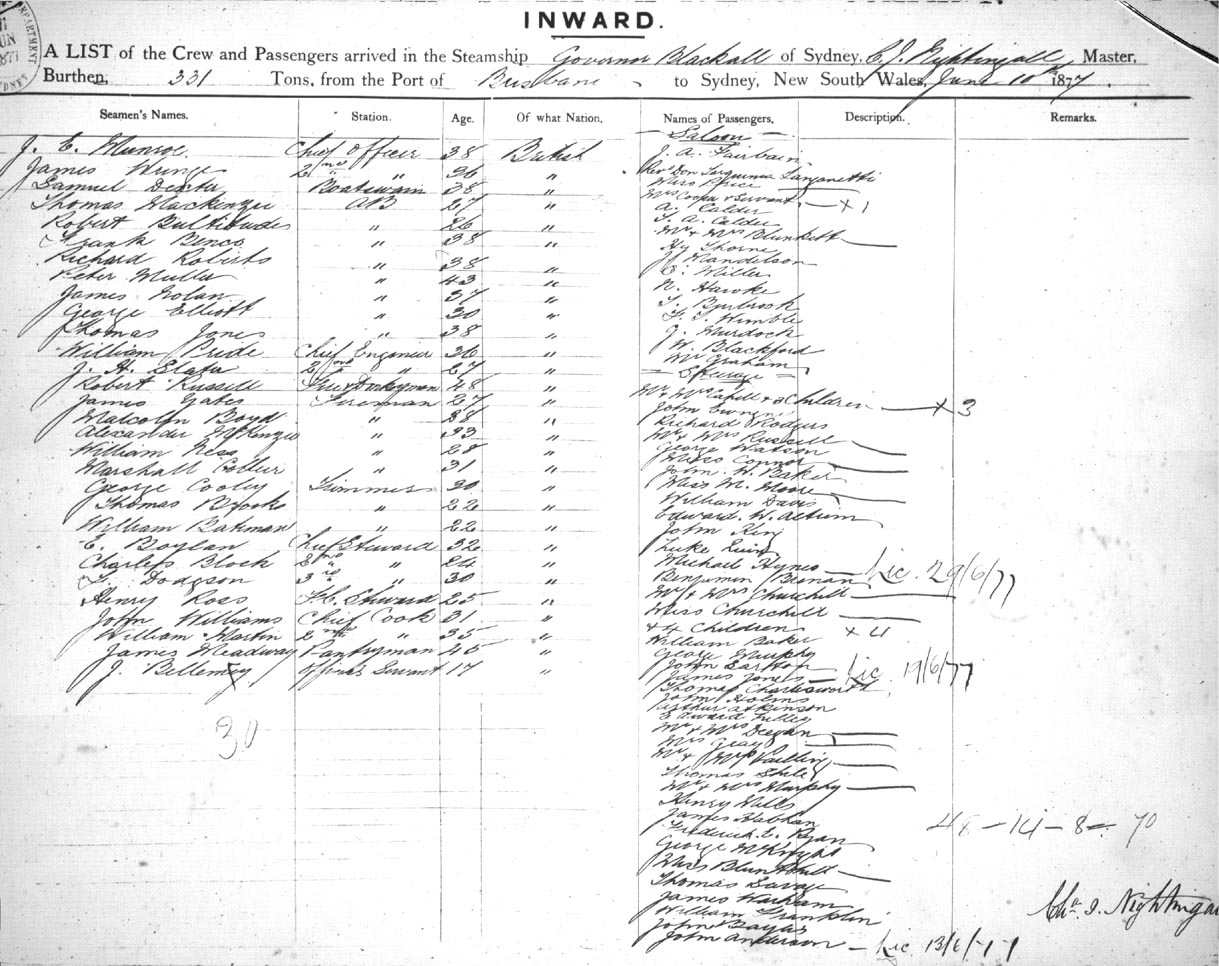 INWARD.
A LIST of the Crew and Passengers arrived in the Steamship Governor Blackall of Sydney, C. J. Nightingall, Master,
Burthen, 331 Tons, from the Port of Brisbane to Sydney, New South Wales, June 10th 1877.
Seamen's Names. Station. Age. Of what Nation. Names of Passengers, Description, Remarks.
— Saloon —
J. E. Munroe Chief Officer 38 British J. A. Fairbairn
James 2nd " 36 "
Samuel Dexter Boatswain 38 " Miss Price
Thomas Mackenzie AB 27 " Mrs Cooper & Servant — x 1
A. Calder
Robert " 26 " T. A. Calder
Frank " 38 " Mr & Mrs Blunkett
Hy Thorne
Richard Roberts " 38 " Mandelson
Peter Muller " 43 " C. Miller
James Nolan " 37 " N. Hawke
George Elliott " 30 "
F. T. Wimble
Thomas Jones " 38 " J. Murdoch
William Pride Chief Engineer 36 " W. Blackford
Mr Graham
J. H. Slater 2nd " 27 "
— Steerage —
Robert Russell Donkeyman 48 " Mr & Mrs Cahill & 3 Children — x 3
James Yates Fireman 27 " John
Malcolm Boyd " 38 " Richard Rodgers
Alexander McKenzie " 33 " Mr & Mrs Russell
William Ness " 28 " George Watson
Miss Connor
Marshall Collier " 31 " John W. Baker
George Cooley Trimmer 30 " Miss M. Moore
William Davis
Thomas Brooks " 22 " Edward W.
William Bateman " 22 " John King
E. Boylan Chief Steward 32 " Luke Quin
Charles Block 2nd " 24 " Michael Hynes
Dodgson 3rd " 30 " Benjamin — Lic. 29/6/77
Henry Ross F.C. Steward 25 " Mr & Mrs Churchill
John Williams Chief Cook 31 " Miss Churchill
& 4 Children x 4
William Martin 2nd " 35 " William Baker
James Meadway Pantryman 45 " George Murphy
J. Bellemey Officers Servant 17 " John
James Jones — Lic. 19/6/77
Thomas Charlesworth
John Holms
Arthur Atkinson
30 Edward
Mr & Mrs Deegan
Mrs Gray
Mr & Mrs
Thomas
Mr & Mrs Murphy
Henry Wills
James
48 — 14 — 8 = 70
Frederick E. Ryan
George McKnight
Miss
Thomas Savage
James
William Franklin
Chas. J. Nightingal
John
John Anderson — Lic. 13/6/77